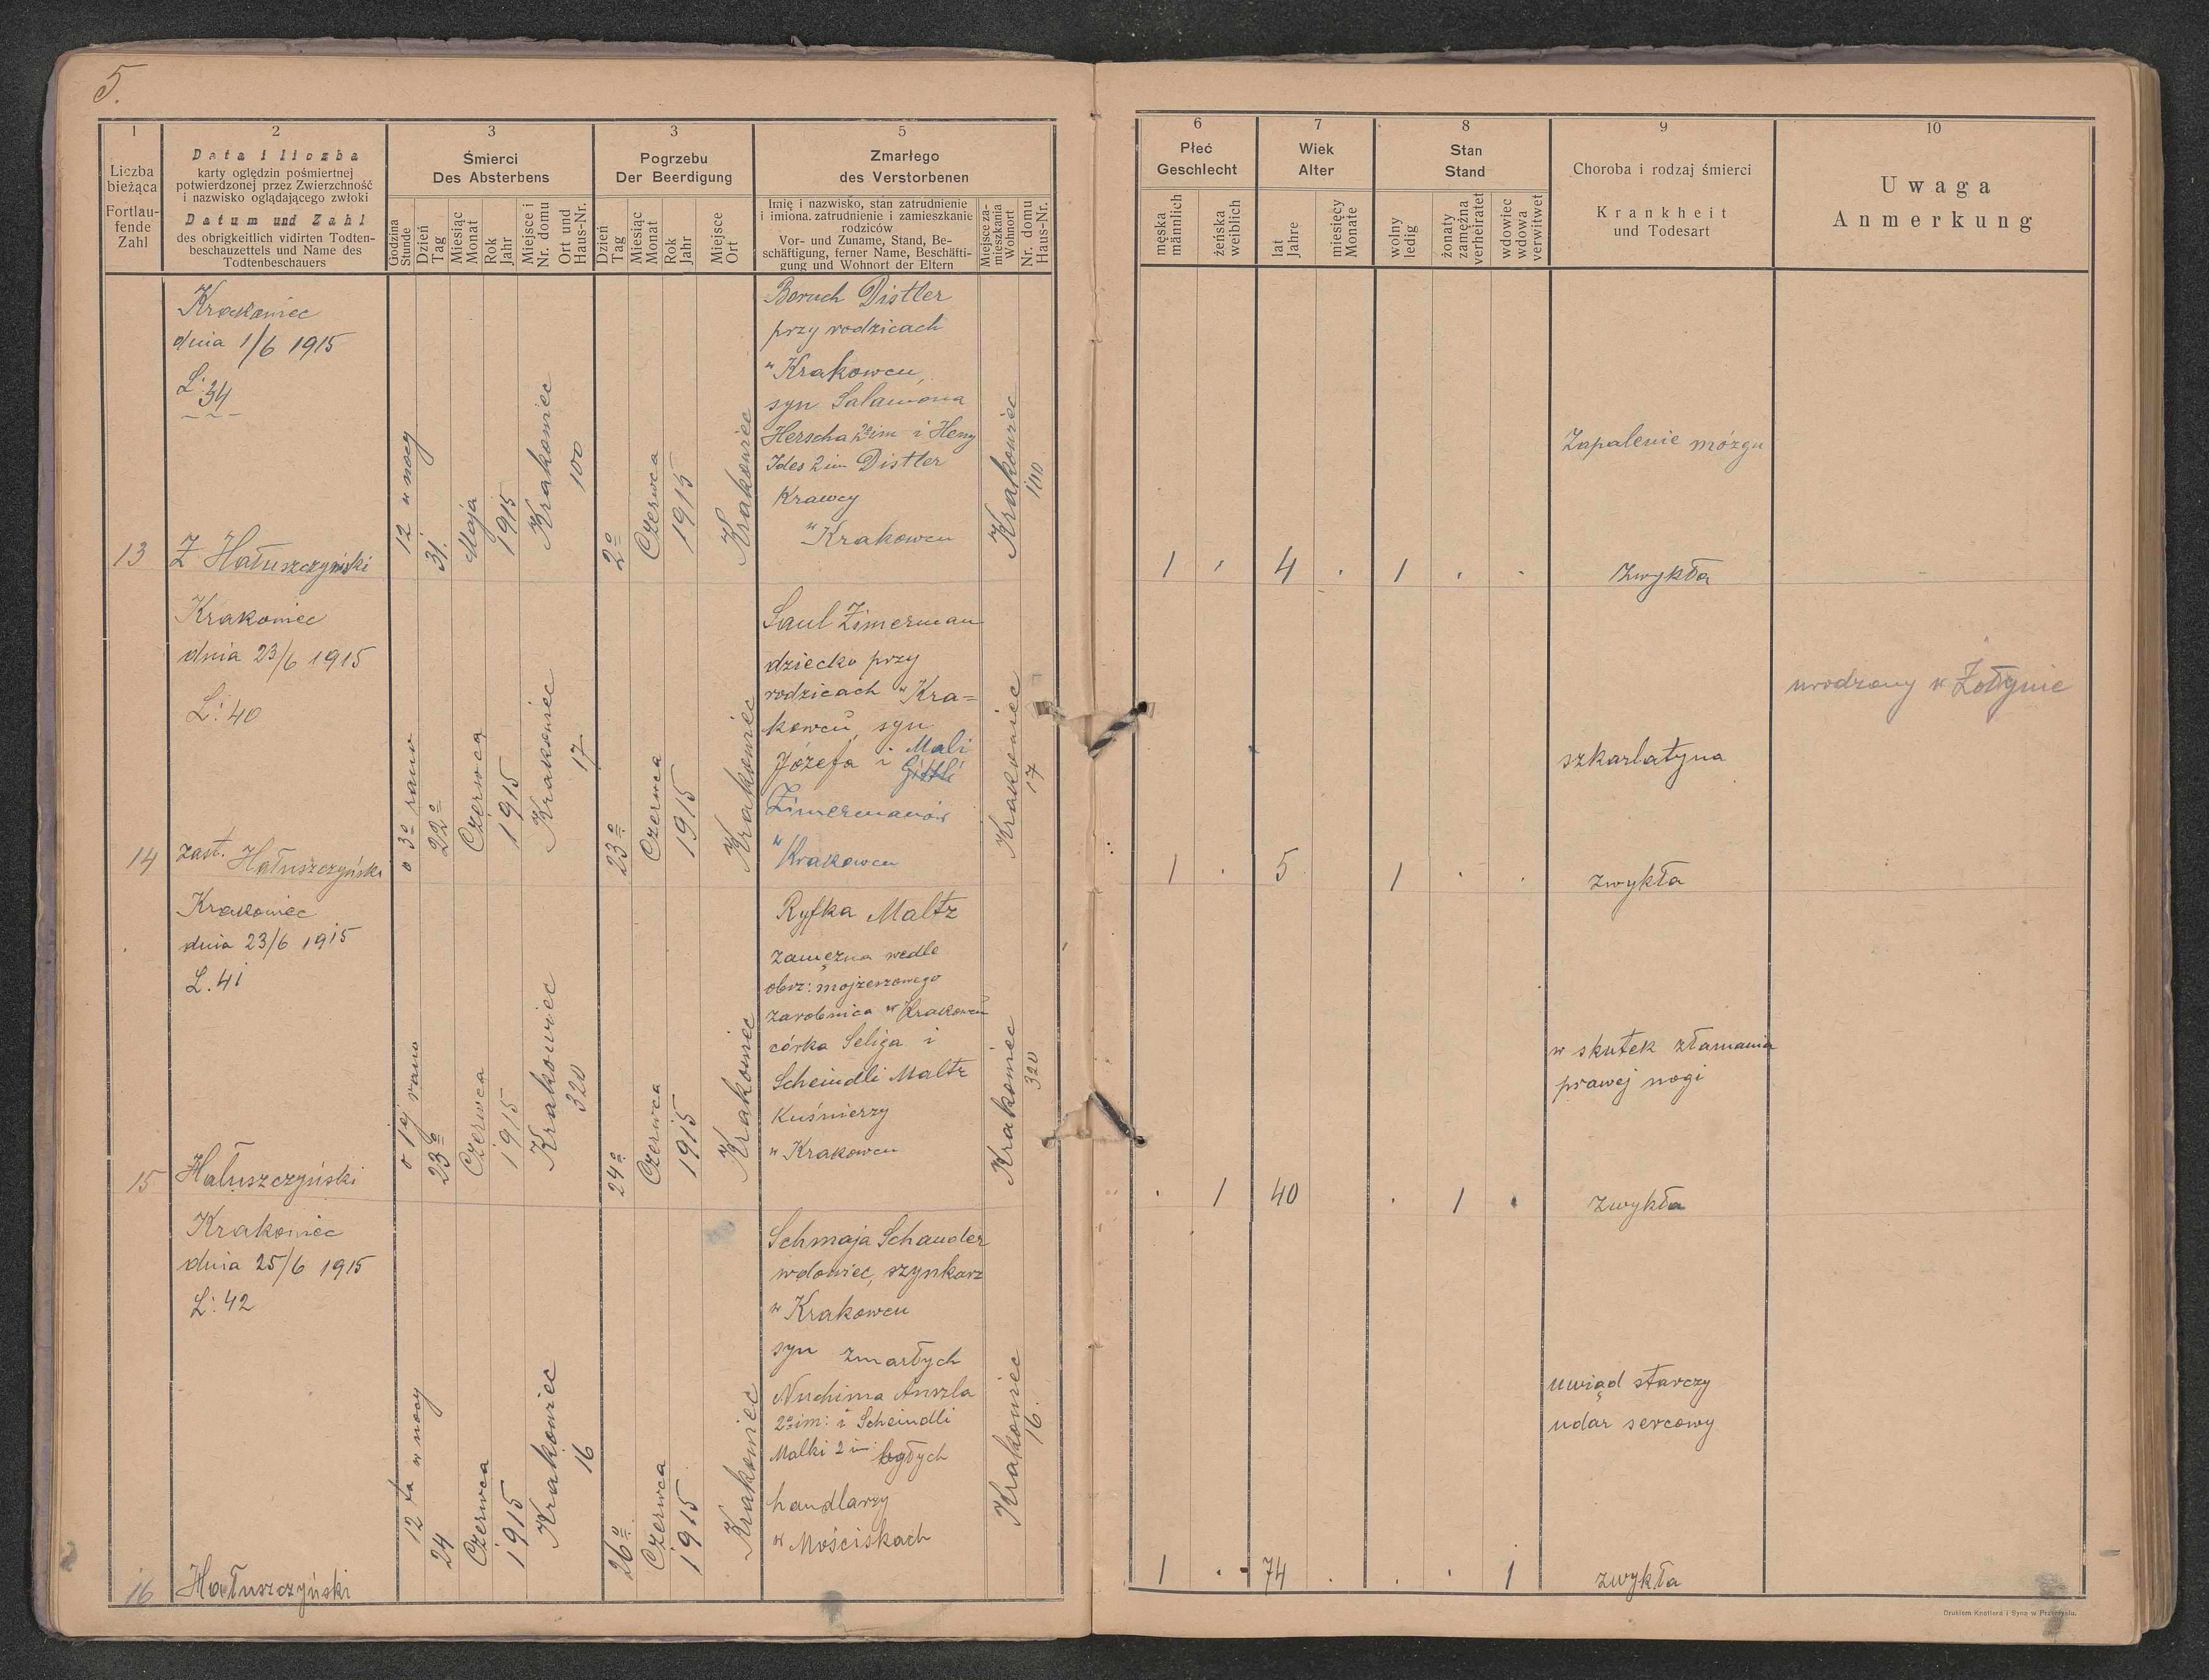 5.
1
2
3
3
5
6
7
8
9
10
Liczba
bieżąca
Fortlau-
fende
Zahl
Data i liczba
karty oględzin pośmiertnej
potwierdzonej przez Zwierzchność
i nazwisko oglądającego zwłoki
Datum und Zahl
des obrigkeitlich vidirten Todten-
beschauzettels und Name des
Todtenbeschauers
Śmierci
Des Absterbens
Godzina
Stunde
Dzień
Tag
Miesiąc
Monat
Rok
Jahr
Miejsce i
Nr. domu
Ort und
Haus-Nr.
Pogrzebu
Der Beerdigung
Dzień
Tag
Miesiąc
Monat
Rok
Jahr
Miejsce
Ort
Zmarłego
des Verstorbenen
Imię i nazwisko, stan zatrudnienie
i imiona, zatrudnienie i zamieszkanie
rodziców
Vor- und Zuname, Stand, Be-
schäftigung, ferner Name, Beschäfti-
gung und Wohnort der Eltern
Miejsce za-
mieszkania
Wohnort
Nr. domu
Haus-Nr.
Płeć
Geschlecht
męska
männlich
żeńska
weiblich
Wiek
Alter
lat
Jahre
miesięcy
Monate
Stan
Stand
wolny
ledig
żonaty
zamężna
verheiratet
wdowiec
wdowa
verwitwet
Choroba i rodzaj śmierci
Krankheit
und Todesart
Uwaga
Anmerkung
13
Krakowiec
dnia 1/6 1915
L: 34
Z Hałuszczyński
12 w nocy
31.
Maja
1915
Krakowiec
100
2o
Czerwca
1915
Krakowiec
Boruch Distler
przy rodzicach
w Krakowcu,
syn Salamona
Herscha 2o im i Heny
Ides 2 im Distler
Krawcy
w Krakowcu
Krakowiec
100
1
4
1
Zapalenie mózgu
Zwykła
14
Krakowiec
dnia 23/6 1915
L: 40
zast. Hałuszczyński
o 3o rano
22o
Czerwca
1915
Krakowiec
17
23o
Czerwca
1915
Krakowiec
Saul Zimerman
dziecko przy
rodzicach w Kra=
kowcu, syn
Józefa i Mali
Gittli
Zimermanów
w Krakowcu
Krakowiec
17
1
5
1
szkarlatyna
zwykła
urodzony w Żołynie
15
Krakowiec
dnia 23/6 1915
L. 41
Hałuszczyński
o 1ej rano
23o
Czerwca
1915
Krakowiec
320
24o
Czerwca
1915
Krakowiec
Ryfka Maltz
zamężna wedle
obrz: mojżeszowego
zarobnica w Krakowcu
córka Seliga i
Scheindli Maltz
Kuśnierzy
w Krakowcu
Krakowiec
320
1
40
1
w skutek złamania
prawej nogi
zwykła
16
Krakowiec
dnia 25/6 1915
L: 42
Hałuszczyński
12 ta w nocy
24
Czerwca
1915
Krakowiec
16
26o
Czerwca
1915
Krakowiec
Schmaja Schauder
wdowiec, szynkarz
w Krakowcu
syn zmarłych
Nuchima Anszla
2o im: i Scheindli
Malki 2 im: byłych
handlarzy
w Mościskach
Krakowiec
16.
1
74
1
uwiąd starczy
udar sercowy
zwykła
Drukiem Knollera i Syna w Przemyślu.